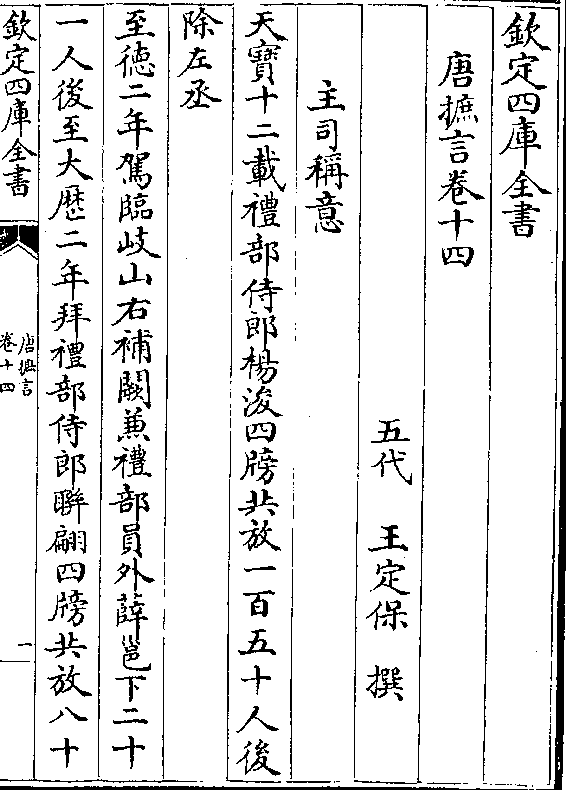 欽定四庫全書
唐摭言卷十四
五代 王定保 撰
主司稱意
天寶十二載禮部侍郎楊浚四牓共放一百五十人後
除左丞
至德二年駕臨岐山右補闕兼禮部員外薛邕下二十
一人後至大歴二年拜禮部侍郎聯翩四牓共放八十
欽定四庫全書
唐摭言
卷十四
一